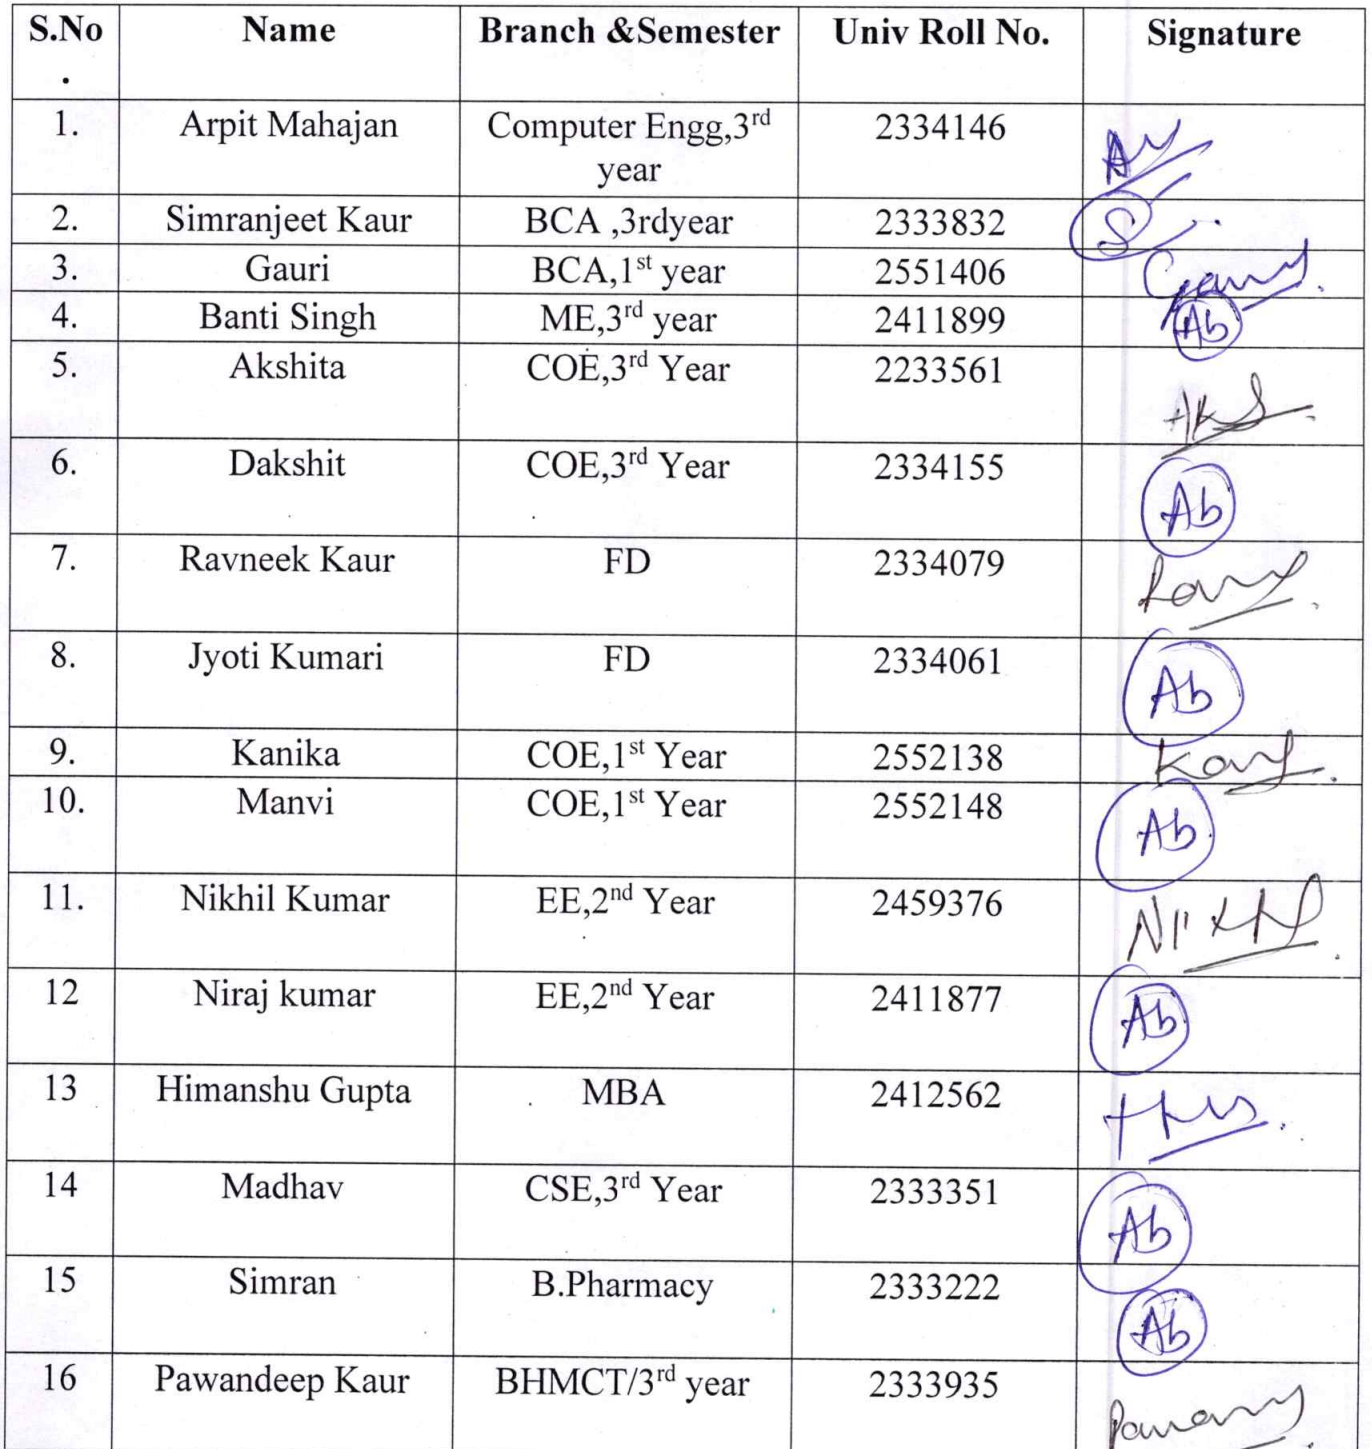 S.No Name Branch &Semester Univ Roll No. Signature
.
1. Arpit Mahajan Computer Engg,3rd 2334146
year
2. Simranjeet Kaur BCA ,3rdyear 2333832 S
3. Gauri BCA,1st year 2551406
4. Banti Singh ME,3rd year 2411899 Ab
5. Akshita COE,3rd Year 2233561 AKS
6. Dakshit COE,3rd Year 2334155 Ab
7. Ravneek Kaur FD 2334079
8. Jyoti Kumari FD 2334061 Ab
9. Kanika COE,1st Year 2552138
10. Manvi COE,1st Year 2552148 Ab
11. Nikhil Kumar EE,2nd Year 2459376
12 Niraj kumar EE,2nd Year 2411877 Ab
13 Himanshu Gupta MBA 2412562
14 Madhav CSE,3rd Year 2333351 Ab
15 Simran B.Pharmacy 2333222 Ab
16 Pawandeep Kaur BHMCT/3rd year 2333935